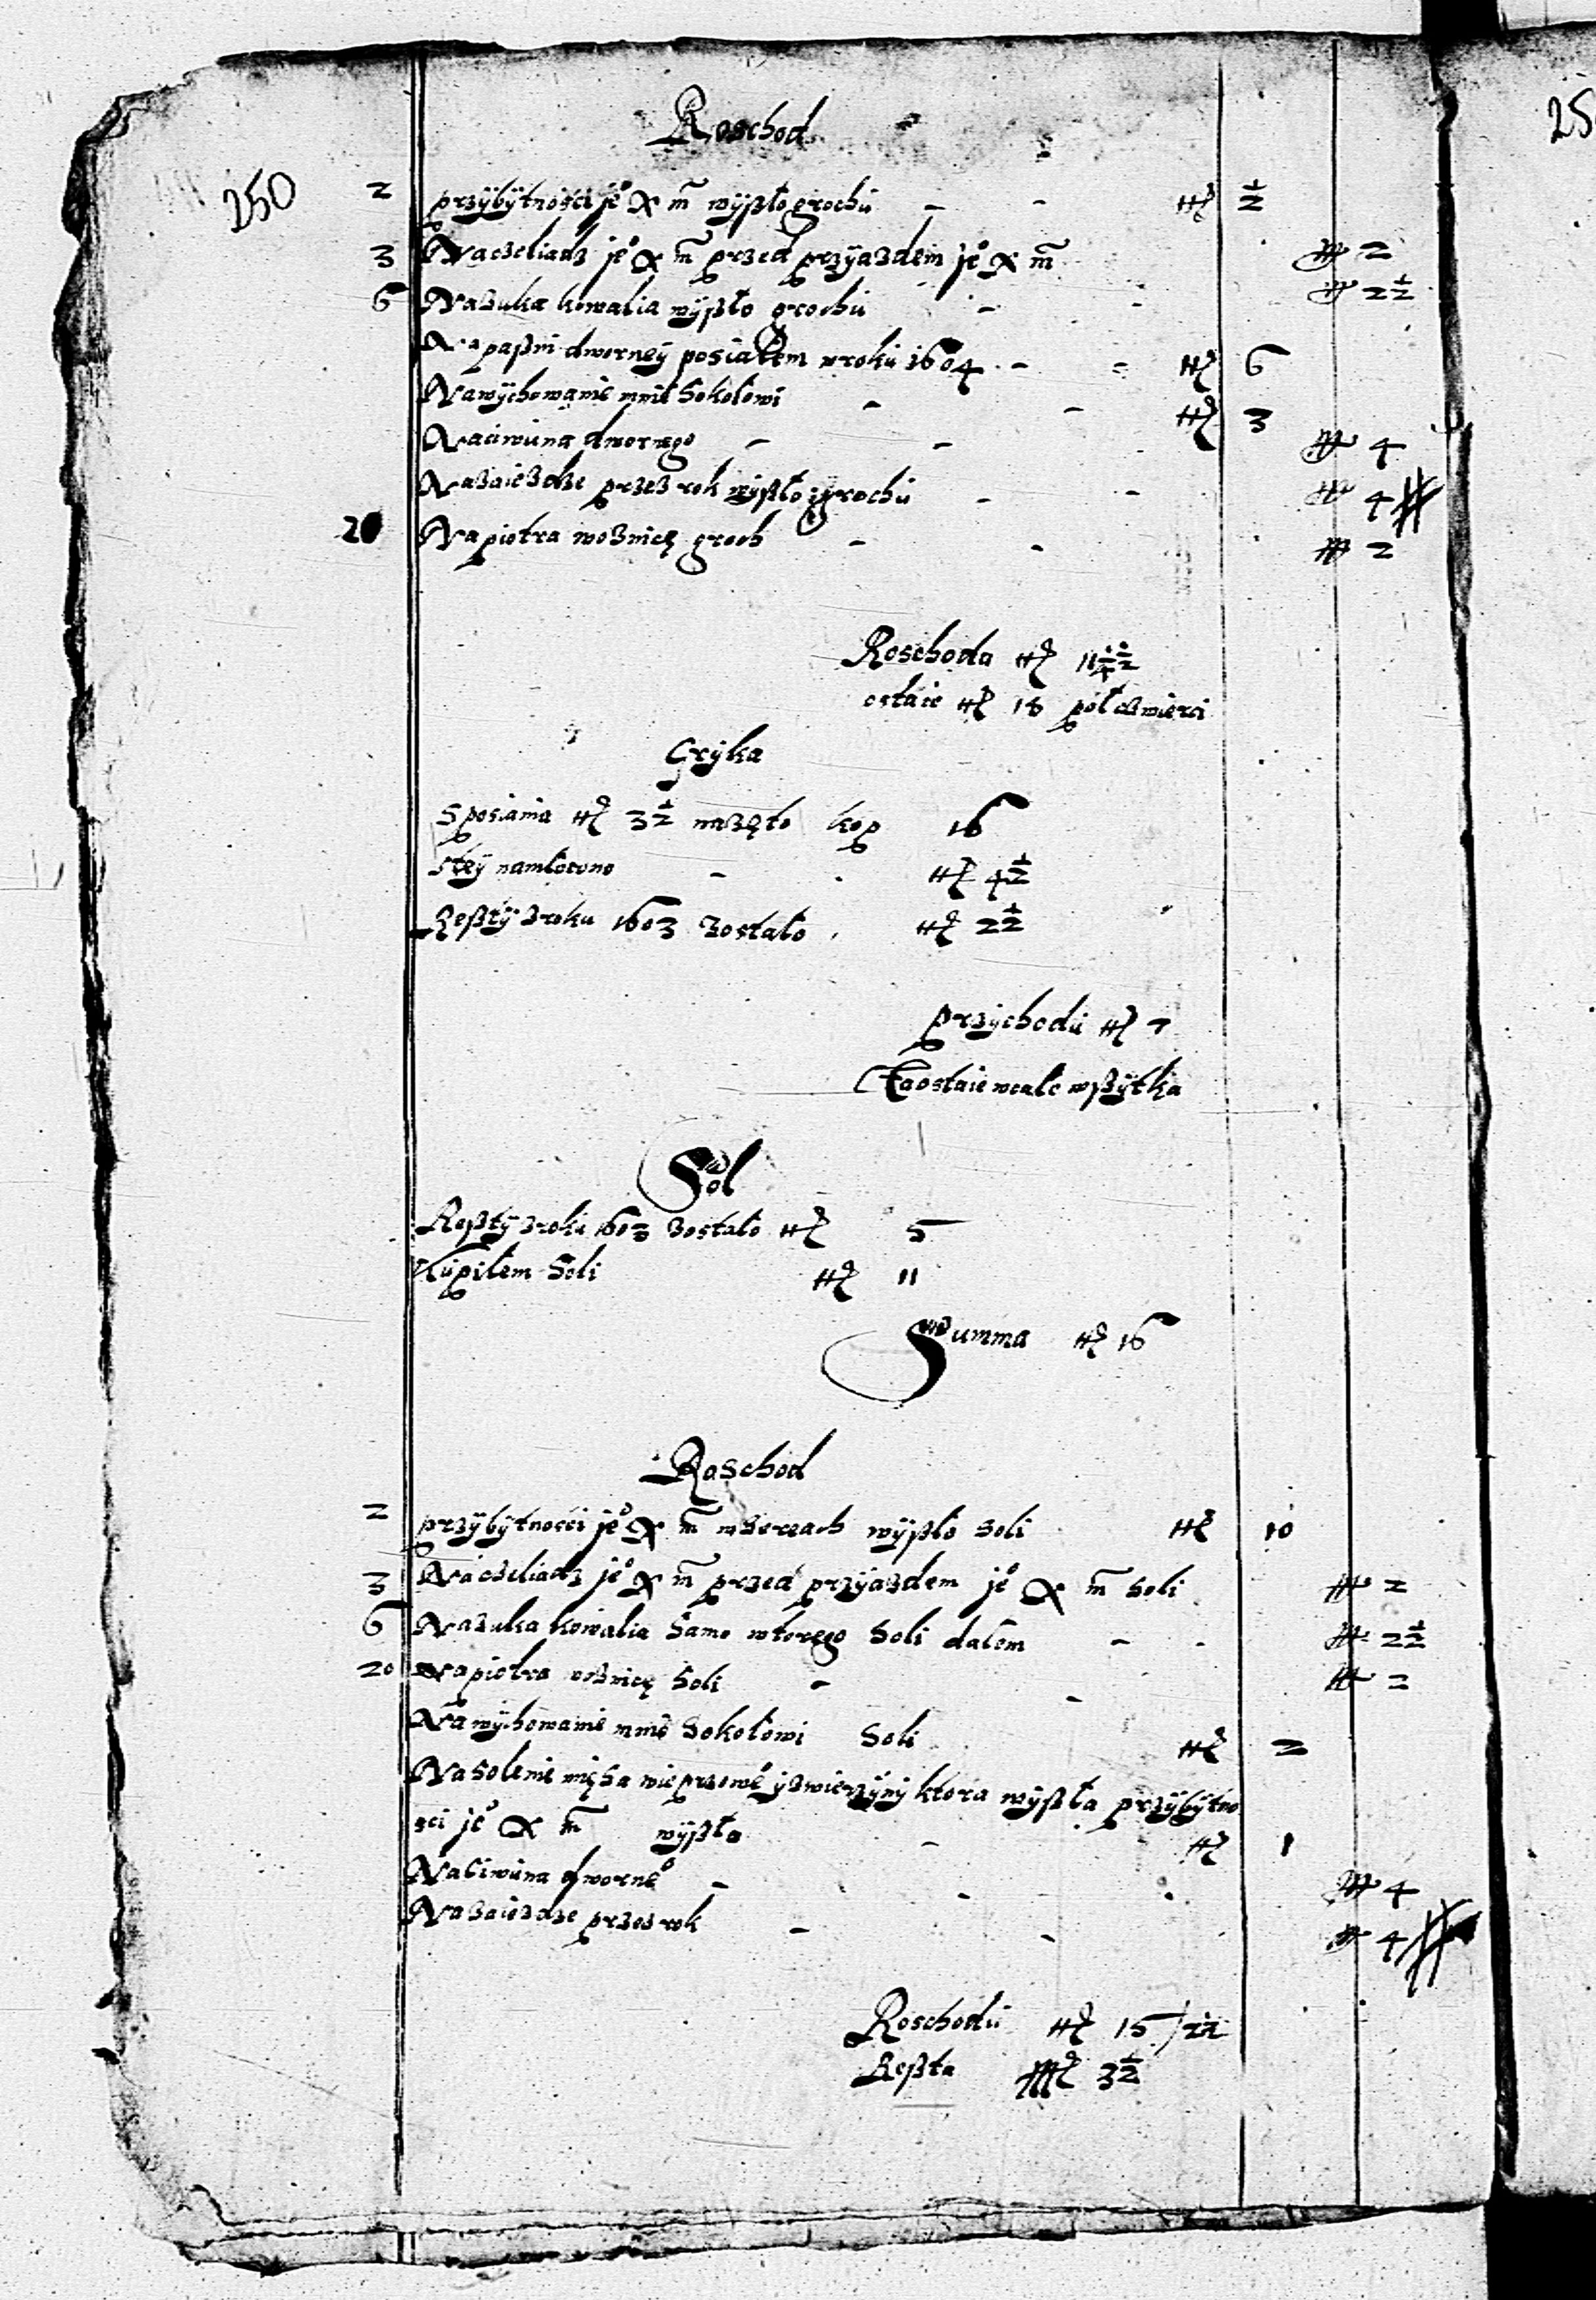 Roschod
250
25
2 przÿbÿtnosci je° X m̃ wÿszło grochu - - ½
3 Na czeliadz je° X m̃ przed przÿazdem je° X m̃ 2
6 Na zuka kowalia wÿszło grochu - - 2½
Na paszni dworneÿ posiałem w roku 1604 - - 6
Na wÿchowanie mnie Sokołowi - - 3
Na ciwuna dwornego - - 4
Na zaiezdze przez rok wÿszło grochu - - 4
20 Na piotra woznicę groch - - 2
Roschodu 11 ¼ ½
ostaie 18 pół czwierci
Grÿka
S posiania 3½ nazęto kop 16
S teÿ namłocono - 4½
Resztÿ z roku 1603 zostało 2½
przÿchodu 7
Ta ostaie wcale wszÿtka
Sol
Resztÿ z roku 1603 zostało 5
Kupiłem Soli 11
Summa 16
Roschod
2 przÿbÿtnosci je° X m̃ wÿszło soli 10
3 Na czeliadz je° X m̃ przed przÿazdem je° X m̃ soli 2
6 Na zuka kowalia samo wtorego Soli dałem - - 2½
20 Na piotra woznicę Soli - - 2
Na wÿchowanie mnie Sokołowi Soli 2
Na solenie męsa wieprzowe° ÿ zwierzÿnÿ ktora wÿszła przÿbÿtno
sci je° X m̃ wÿszło - 1
Na ciwuna dworne° - - 4
Na zaiezdze przez rok - - 4
Roschodu 15
Reszta 3½